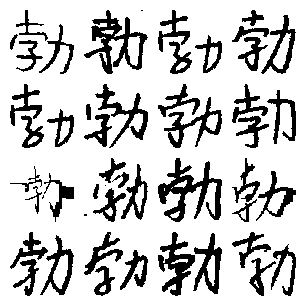 勃勃勃勃
勃勃勃勃
勃勃勃勃
勃勃勃勃